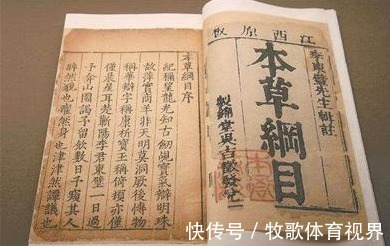 江西原板
李東璧先生輯註
本草綱目
本草綱目序
紀稱望龍光知古劍覘寶氣辨明珠
故萍實商羊非天明莫洞厥後博物
稱華辯字稱康析寶玉稱倚頓亦僅
僅晨星耳楚蘄陽李君東璧一日過
予弇山園謁予留飲數日予窺其人
睟然貌也癯然身也津津然譚議也
快传号 / 牧歌体育视界